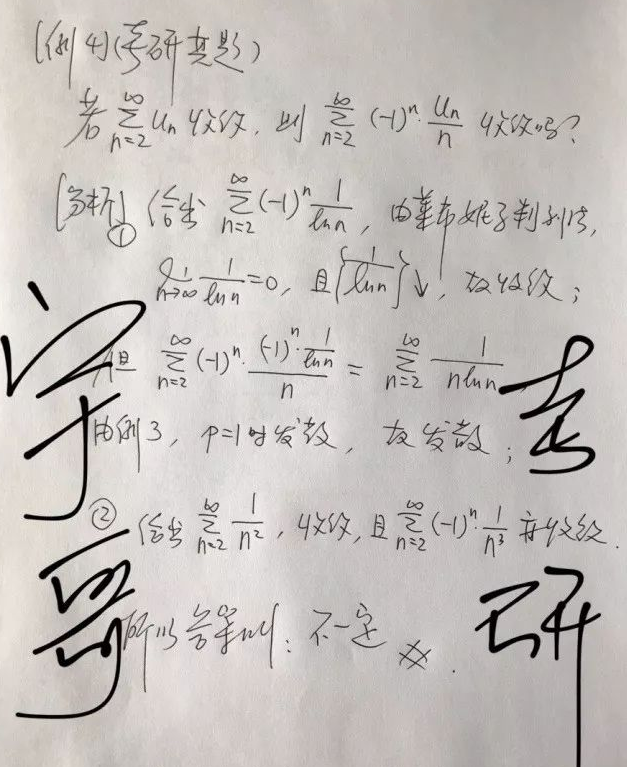 [例4](考研真题)
若 ∑_{n=2}^{∞} u_n 收敛, 则 ∑_{n=2}^{∞} (-1)^n · u_n/n 收敛吗?
[分析] ① 给出 ∑_{n=2}^{∞} (-1)^n 1/ln n, 由莱布妮子判别法,
lim_{n→∞} 1/ln n = 0, 且 {1/ln n}↓, 故收敛;
但 ∑_{n=2}^{∞} (-1)^n · ((-1)^n · 1/ln n)/n = ∑_{n=2}^{∞} 1/(n ln n)
由例3, p=1时发散, 故发散;
② 给出 ∑_{n=2}^{∞} 1/n², 收敛, 且 ∑_{n=2}^{∞} (-1)^n · 1/n³ 亦收敛.
所以答案叫: 不一定 #.
宇哥
考研